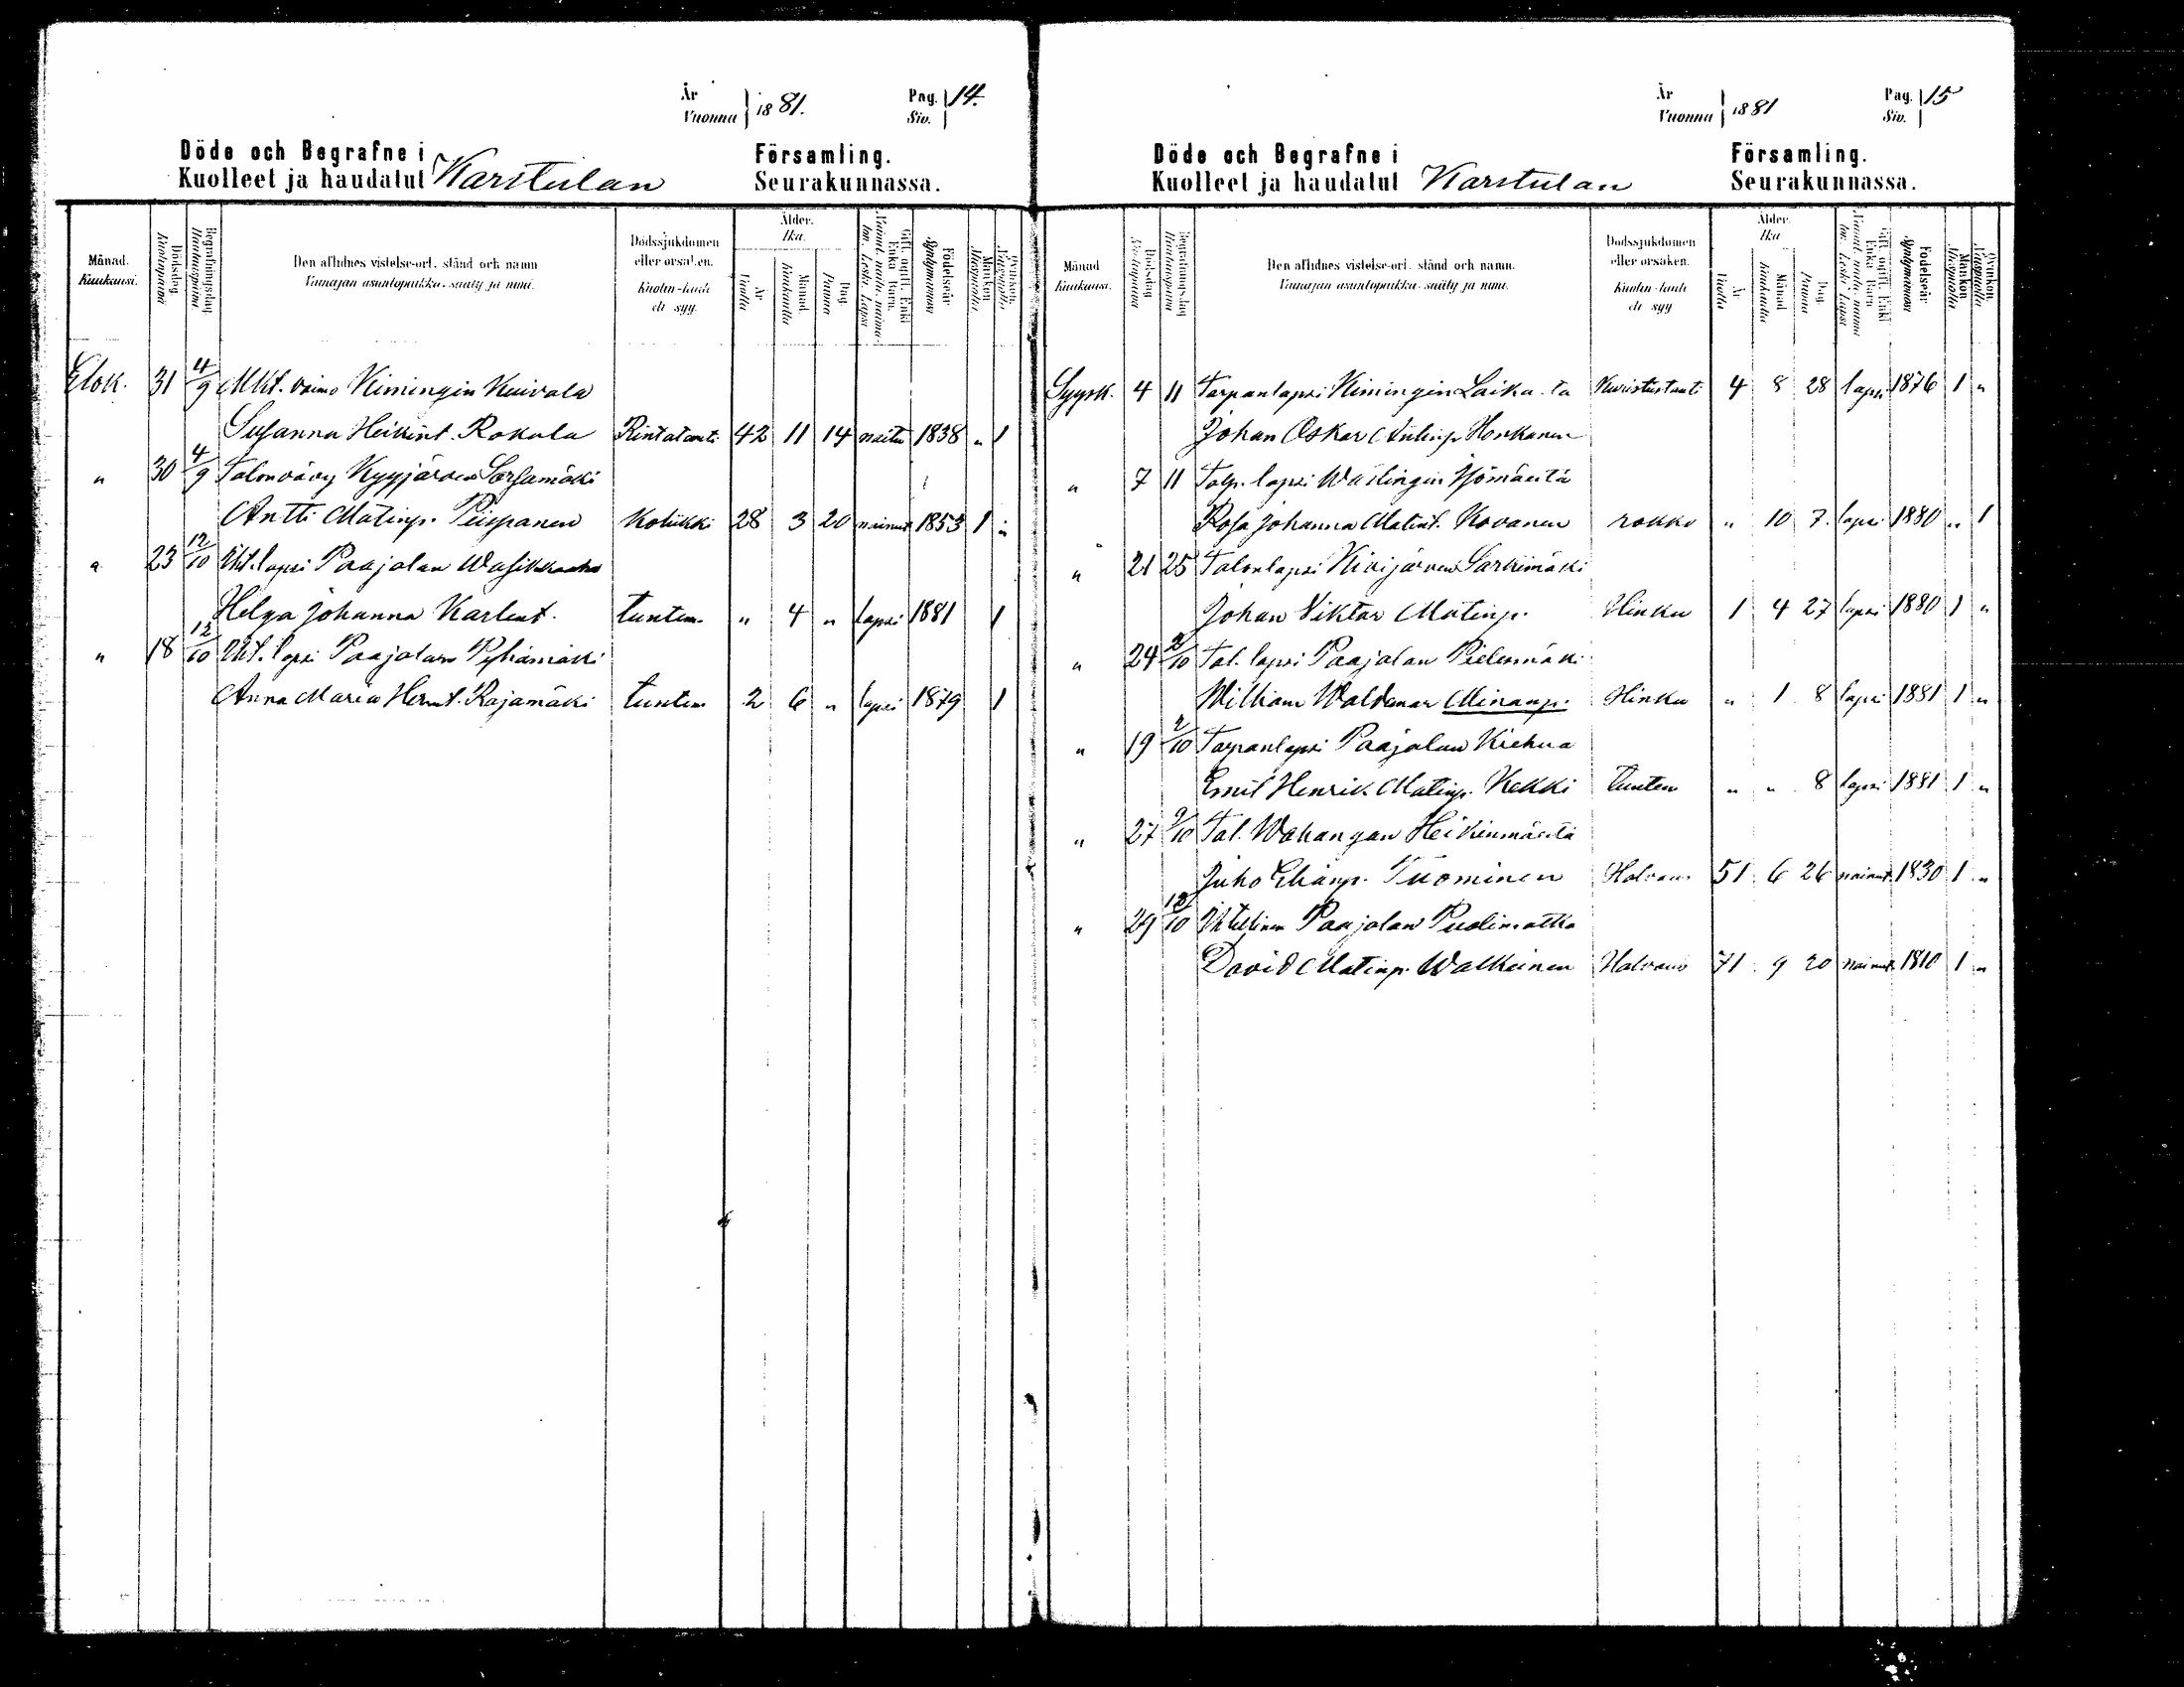 År
Vuonna 1881.
Pag.
Siv. 14.
Döde och Begrafne i
Kuolleet ja haudatut Karstulan
Församling.
Seurakunnassa.
Månad.
Kuukausi.
Dödsdag.
Kuolinpäivä
Begrafningsdag
Hautauspäivä
Den aflidnes vistelse-ort, stånd och namn
Vainajan asuntopaikka, sääty ja nimi.
Dödssjukdomen
eller orsaken.
Kuolin-tauti
eli syy.
Ålder.
Ikä.
År
Vuotta
Månad.
Kuukautta
Dag.
Päivää
Gift, ogift, Enkl.
Enka Barn.
Födelseår
Syntymävuosi
Mankön
Miespuolta
Qvinkön.
Vaimopuolta
Elok. 31 4/9 Mkt. vaimo Kimingin Kuivala
Susanna Heikint. Rokala Rintataut. 42 11 14 naitu 1838 " 1
" 30 4/9 Talonvävy Kyyjärven Sorsamäki
Antti Matinp. Piispanen Kolükki 28 3 20 nainut 1853 1 "
" 23 12/10 Iht. lapsi Paajalan
Helga Johanna Karlent. tuntem. " 4 " lapsi 1881 1
" 18 12/10 Iht. lapsi Paajalan Pyhämäki
Anna Maria Hermt. Rajamäki tuntem 2 6 " lapsi 1879 1
År
Vuonna 1881
Pag.
Siv. 15
Döde och Begrafne i
Kuolleet ja haudatut Karstulan
Församling.
Seurakunnassa.
Månad
Kuukausi.
Dödsdag
Kuolinpäivä
Begrafningsdag
Hautauspäivä
Den aflidnes vistelse-ort, stånd och namn.
Vainajan asuntopaikka, sääty ja nimi.
Dödssjukdomen
eller orsaken.
Kuolin-tauti
eli syy
Ålder.
Ikä
År
Vuotta
Månad
Kuukautta
Dag
Päivää
Gift, ogift, Enkl
Enka Barn
Födelseår
Syntymävuosi
Mankön
Miespuolta
Qvinkön.
Vaimopuolta
Syysk. 4 11 Torpanlapsi Kimingin Kuristustauti 4 8 28 lapsi 1876 1 "
Johan Oskar Antinp. Honkanen
" 7 11 Talp. lapsi Wastingin
Rosa Johanna Matint. Kovanen rokko " 10 7 lapsi 1880 " 1
" 21 25 Talonlapsi Kivijärven Sarkimäki
Johan Viktor Matinp. Hinku 1 4 27 lapsi 1880 1 "
" 24 2/10 Tal. lapsi Paajalan Pielesmäki
William Waldemar Minanp. Hinku " 1 8 lapsi 1881 1 "
" 19 2/10 Torpanlapsi Paajalan Kiehua
Emil Henrik Matinp. Kekki tuntem " " 8 lapsi 1881 1 "
" 27 9/10 Tal. Wahangan Heikinmäeltä
Juho Elianp. Tuominen Halvaus 51 6 26 nainut 1830 1 "
" 29 12/10 Itsellinen Paajalan Puolimatka
David Matinp. Walkeinen Halvaus 71 9 20 nainut 1810 1 "